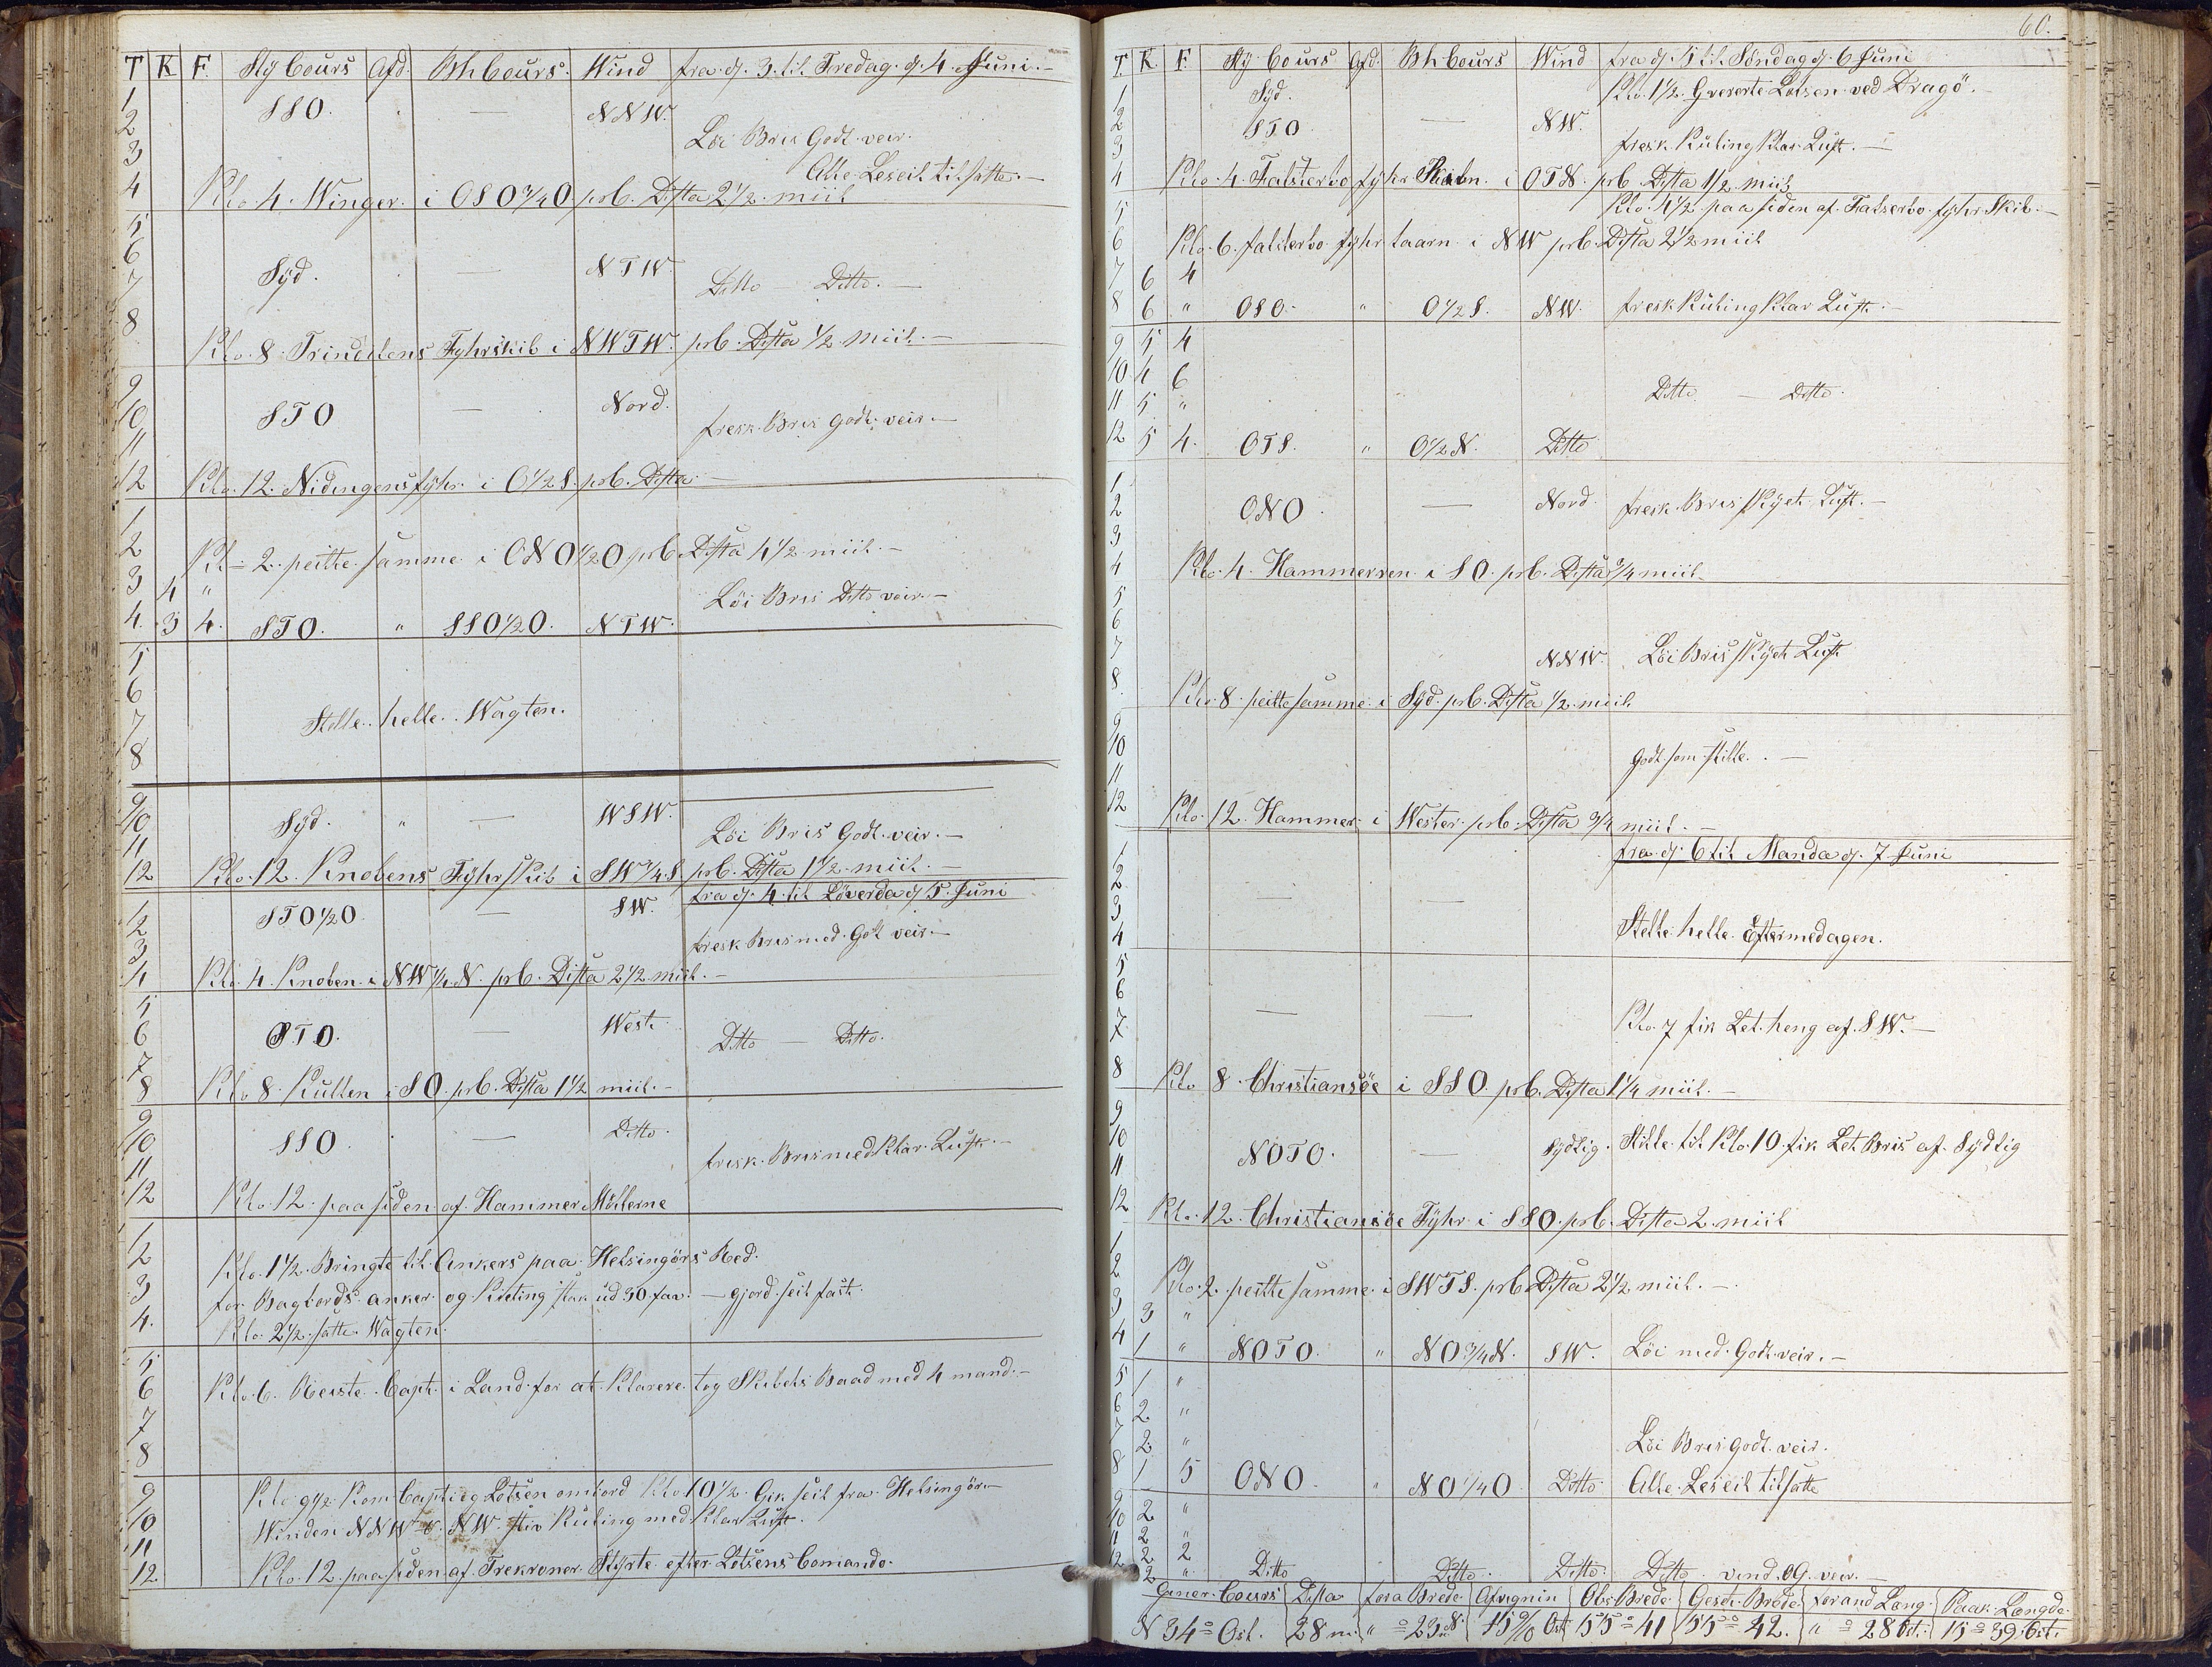 T K F Sty Cours Afd. Bh Cours. Wind fra d. 3. til Fredag. d. 4. Juni.
1
2 SSO. — NNW.
3 Löi Bris Godt veir.
Alle Leseil tilsatte. —
4 Klo 4. Winger. i OSO 3/4 O. prb. Dista 2 1/2 miil
5
6
7 Syd. — NTW. Ditto Ditto. —
8 Klo. 8. Trindelens Fyhrskib i NWTW. prb. Dista 1/2 Miil. —
9
10 STO — Nord. fresk. Bris godt. veir. —
11
12 Klo. 12. Nidingens fyhr. i O 1/2 S. prb. Dista —
1
2 Kl. 2. peilte samme i ONO 1/2 O prb Dista 4 1/2 miil. —
3 4 "
4. 3 4. STO. " SSO 1/2 O. NTW. Löi Bris Ditto veir. —
5
6
7 Stelle. helle. Wagten.
8
9
10 Syd. " — WSW. Löi Bris Godt. veir. —
11
12 Klo. 12. Knobens Fyhrskib i SW 1/4 S. prb. Dista 1 1/2 miil. —
fra d. 4. til Löverda d. 5. Juni
1
2 STO 1/2 O. — SW. fresk Bris med. Got veir —
3
4 Klo. 4. Knoben. i NW 1/4. N. prb. Dista 2 1/2 miil. —
5
6 STO. — West. Ditto — Ditto.
7
8 Klo 8. Kullen i SO. prb. Dista 1 1/2 miil. —
9
10 SSO. — Ditto. frisk. Bris med Klar. Luft. —
11
12 Klo. 12. paa siden af. Hammer Möllerne
1
2 Klo. 1 1/2. Bringte til Ankers paa. Helsingörs Red.
3 for. Bagbords. anker. og Kieting stak ud 30. fav. — gjord. seil fast.
4. Klo. 2 1/2. satte Wagten.
5
6 Klo. 6. Reiste. Capt. i Land. for at Klarere. tog Skibets Baad med 4 mand. —
7
8
9 Klo. 9 1/2. Kom Capt. og Lotsen ombord Klo. 10 1/2. Gik seil fra. Helsingör. —
10 Winden NNW. NW. stiv Kuling med Klar Luft.
11
12 Klo. 12. paa siden. af. Trekroner. Styrte. efter. Lotsens Comando.
60.
T. K. F. Sty. Cours Afd. Bh Cours Wind fra d. 5 til Söndag d. 6 Juni
1 Syd. Klo. 1 1/2. Qvererte Lotsen. ved Dragö. —
2 STO — NW.
3 fresk Kuling Klar. Luft. —
4 Klo. 4. Falsterbo fyhr Skibn. i OTN. prb. Dista 1/2. miil
5 Klo. 4 1/2. paa siden af. Falserbo. fyhr Skib. —
6 Klo. 6. falsterbo fyhr taarn. i NW prb. Dista 2 1/2 miil
7 6 4
8 6 " OSO. " O 1/2 S. NW. fresk Kuling Klar Luft. —
9 5 4
10. 4 6 Ditto — Ditto.
11 5 "
12 5 4. OTS. " O 1/2 N. Ditto
1
2 ONO. — Nord. fresk. Bris Skyet Luft. —
3
4 Klo. 4. Hammerren. i SO. prb. Dista 3/4 miil.
5
6
7 NNW. Löi Bris Skyet Luft
8. Klo. 8. peilte samme. i Syd. prb. Dista 1/2. miil
9
10 Godt. som. stille. . —
11
12 Klo. 12. Hammer. i Wester. prb. Dista 3/4 miil. —
fra. d. 6 til Manda d. 7 Juni
1
2 — —
3 Stelle helle. Eftermedagen.
4
5
6
7. — — Klo. 7 fik Let. heng af. SW. —
8 Klo 8. Christiansöe i SSO. prb. Dista 1 1/4 miil. —
9
10 NOTO. — Sydlig. Stille. til Klo. 10. fik Let Bris af. Sydlig
11
12 Klo. 12. Christiansöe Fyhr. i SSO. prb. Dista 2. miil
1
2 Klo. 2. peilte samme. i SWTS. prb Dista 2 1/2 miil. —
3 3 "
4 1 " NOTO. " NO 3/4 N. SW. Löi med. Godt veir. —
5 1 "
6 2 "
7 2 " Löi Bris godt. veir.
8 1 5 ONO. " NO 1/4 O. Ditto Alle. Leseil tilsatte
9 2 "
10 2 "
11 2 2
12 2 " Ditto Ditto. Ditto. Ditto. vind. OG. veir. —
Gener. Cours Dista fora Brede Afvignin Obs Brede. Gest. Brede forand Lang. Paak. Længde.
N 34° Ost. 28 m. " ° 23 N. 15 Ost 55° 41 55° 42. " ° 28 Ost. 15° 39. Ost.